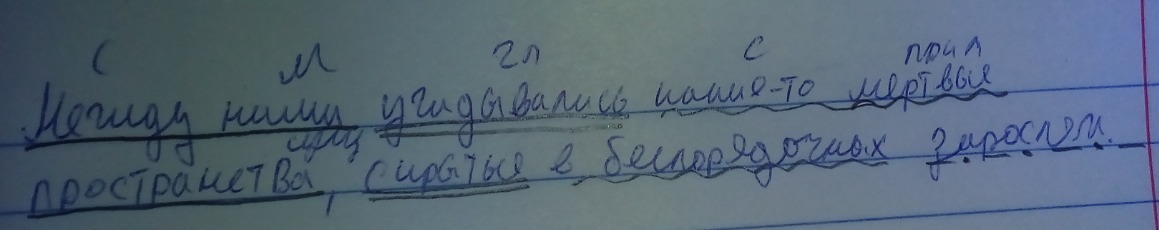 с м гл с прил
Между ними угадывались какие-то мертвые
сущ
пространства, скрытые в беспорядочных зарослях.